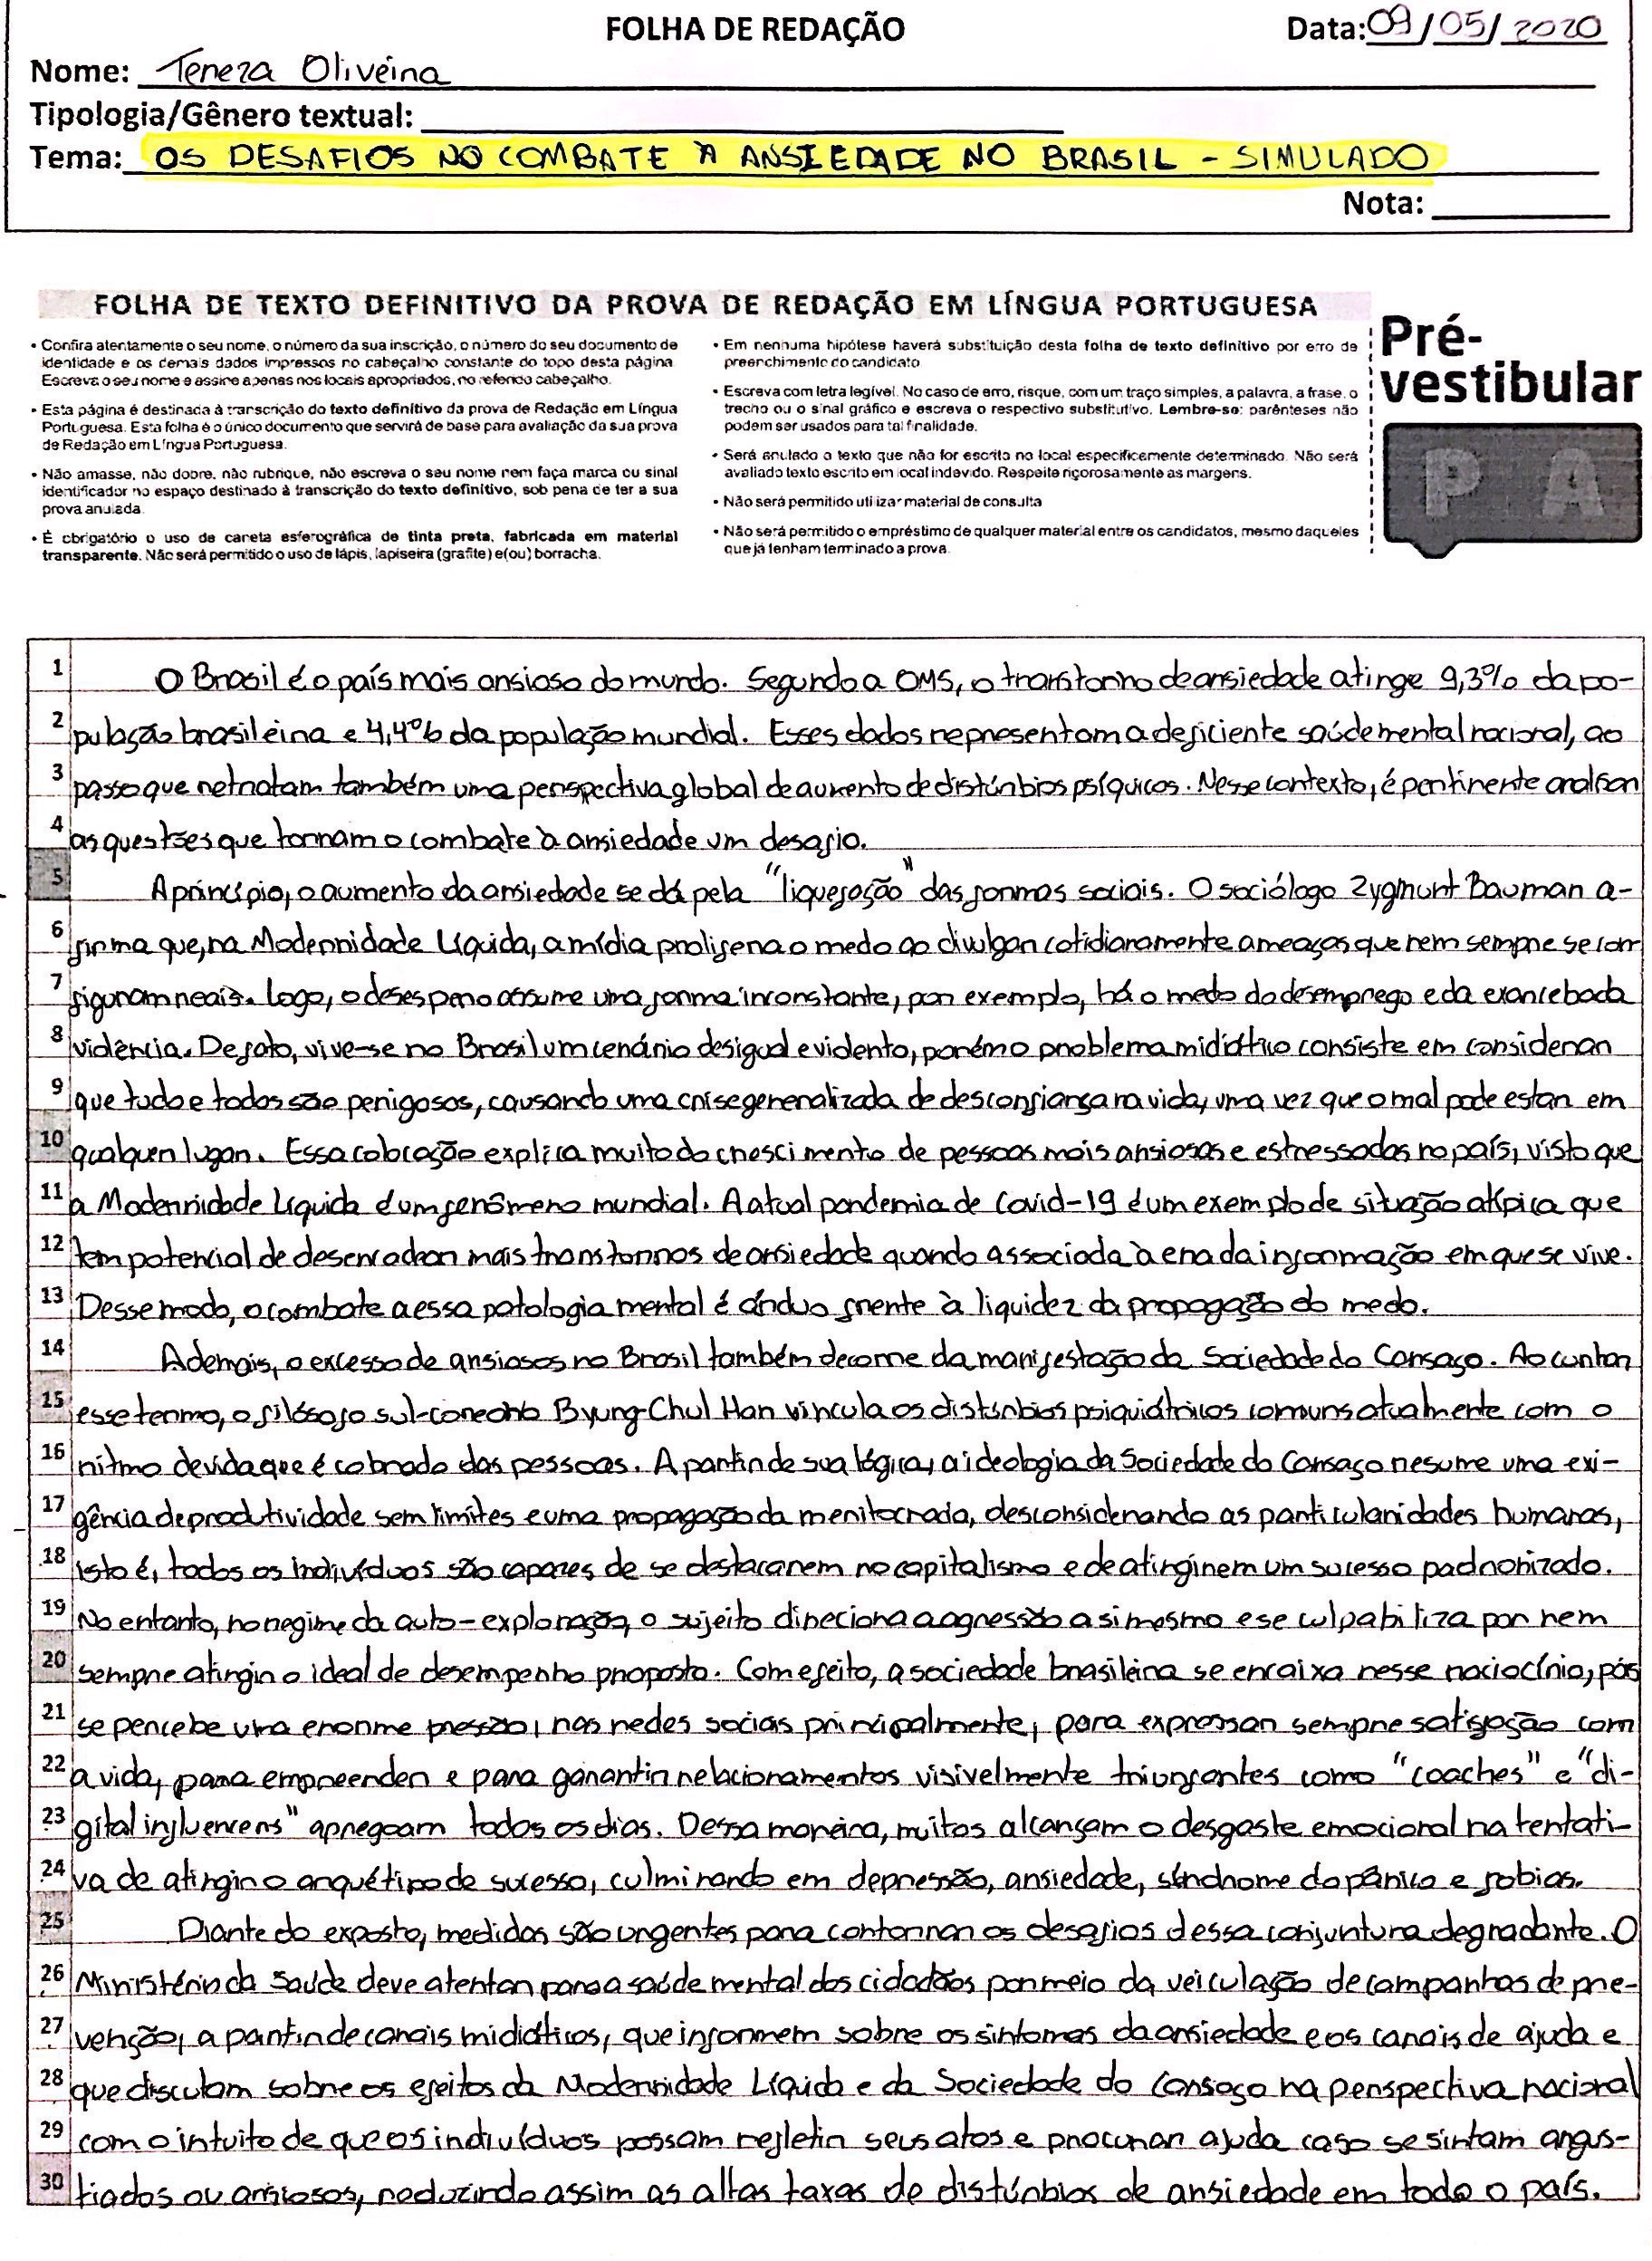 FOLHA DE REDAÇÃO
Data: 09/05/2020
Nome: Tereza Oliveira
Tipologia/Gênero textual:
Tema: OS DESAFIOS NO COMBATE À ANSIEDADE NO BRASIL - SIMULADO
Nota:
FOLHA DE TEXTO DEFINITIVO DA PROVA DE REDAÇÃO EM LÍNGUA PORTUGUESA
• Confira atentamente o seu nome, o número da sua inscrição, o número do seu documento de
identidade e os demais dados impressos no cabeçalho constante do topo desta página.
Escreva o seu nome e assine apenas nos locais apropriados, no referido cabeçalho.
• Esta página é destinada à transcrição do texto definitivo da prova de Redação em Língua
Portuguesa. Esta folha é o único documento que servirá de base para avaliação da sua prova
de Redação em Língua Portuguesa.
• Não amasse, não dobre, não rubrique, não escreva o seu nome nem faça marca ou sinal
identificador no espaço destinado à transcrição do texto definitivo, sob pena de ter a sua
prova anulada.
• É obrigatório o uso de caneta esferográfica de tinta preta, fabricada em material
transparente. Não será permitido o uso de lápis, lapiseira (grafite) e(ou) borracha.
• Em nenhuma hipótese haverá substituição desta folha de texto definitivo por erro de
preenchimento do candidato
• Escreva com letra legível. No caso de erro, risque, com um traço simples, a palavra, a frase, o
trecho ou o sinal gráfico e escreva o respectivo substitutivo. Lembre-se: parênteses não
podem ser usados para tal finalidade.
• Será anulado o texto que não for escrito no local especificamente determinado. Não será
avaliado texto escrito em local indevido. Respeite rigorosamente as margens.
• Não será permitido utilizar material de consulta
• Não será permitido o empréstimo de qualquer material entre os candidatos, mesmo daqueles
que já tenham terminado a prova.
Pré-
vestibular
P A
1 O Brasil é o país mais ansioso do mundo. Segundo a OMS, o transtorno de ansiedade atinge 9,3% da po-
2 pulação brasileira e 4,4% da população mundial. Esses dados representam a deficiente saúde mental nacional, ao
3 passo que retratam também uma perspectiva global de aumento de distúrbios psíquicos. Nesse contexto, é pertinente analisar
4 as questões que tornam o combate à ansiedade um desafio.
5 A princípio, o aumento da ansiedade se dá pela "liquefação" das formas sociais. O sociólogo Zygmunt Bauman a-
6 firma que, na Modernidade Líquida, a mídia prolifera o medo ao divulgar cotidianamente ameaças que nem sempre se con
7 figuram reais. Logo, o desespero assume uma forma inconstante, por exemplo, há o medo do desemprego e da exarcebada
8 violência. De fato, vive-se no Brasil um cenário desigual e violento, porém o problema midiático consiste em considerar
9 que tudo e todos são perigosos, causando uma crise generalizada de desconfiança na vida, uma vez que o mal pode estar em
10 qualquer lugar. Essa colocação explica muito do crescimento de pessoas mais ansiosas e estressadas no país, visto que
11 a Modernidade Líquida é um fenômeno mundial. A atual pandemia de Covid-19 é um exemplo de situação atípica que
12 tem potencial de desencadear mais transtornos de ansiedade quando associada à era da informação em que se vive.
13 Desse modo, o combate a essa patologia mental é árduo frente à liquidez da propagação do medo.
14 Ademais, o excesso de ansiosos no Brasil também decorre da manifestação da Sociedade do Cansaço. Ao cunhar
15 esse termo, o filósofo sul-coreano Byung-Chul Han vincula os distúrbios psiquiátricos comuns atualmente com o
16 ritmo de vida que é cobrado das pessoas. A partir de sua lógica, a ideologia da Sociedade do Cansaço resume uma exi-
17 gência de produtividade sem limites e uma propagação da meritocracia, desconsiderando as particularidades humanas,
18 isto é, todos os indivíduos são capazes de se destacarem no capitalismo e de atingirem um sucesso padronizado.
19 No entanto, no regime da auto-exploração, o sujeito direciona a agressão a si mesmo e se culpabiliza por nem
20 sempre atingir o ideal de desempenho proposto. Com efeito, a sociedade brasileira se encaixa nesse raciocínio, pois
21 se percebe uma enorme pressão, nas redes sociais principalmente, para expressar sempre satisfação com
22 a vida, para empreender e para garantir relacionamentos visivelmente triunfantes como "coaches" e "di-
23 gital influencers" apregoam todos os dias. Dessa maneira, muitos alcançam o desgaste emocional na tentati-
24 va de atingir o arquétipo de sucesso, culminando em depressão, ansiedade, síndrome do pânico e fobias.
25 Diante do exposto, medidas são urgentes para contornar os desafios dessa conjuntura degradante. O
26 Ministério da Saúde deve atentar para a saúde mental dos cidadãos por meio da veiculação de campanhas de pre-
27 venção, a partir de canais midiáticos, que informem sobre os sintomas da ansiedade e os canais de ajuda e
28 que discutam sobre os efeitos da Modernidade Líquida e da Sociedade do Cansaço na perspectiva nacional
29 com o intuito de que os indivíduos possam refletir seus atos e procurar ajuda caso se sintam angus-
30 tiados ou ansiosos, reduzindo assim as altas taxas de distúrbios de ansiedade em todo o país.